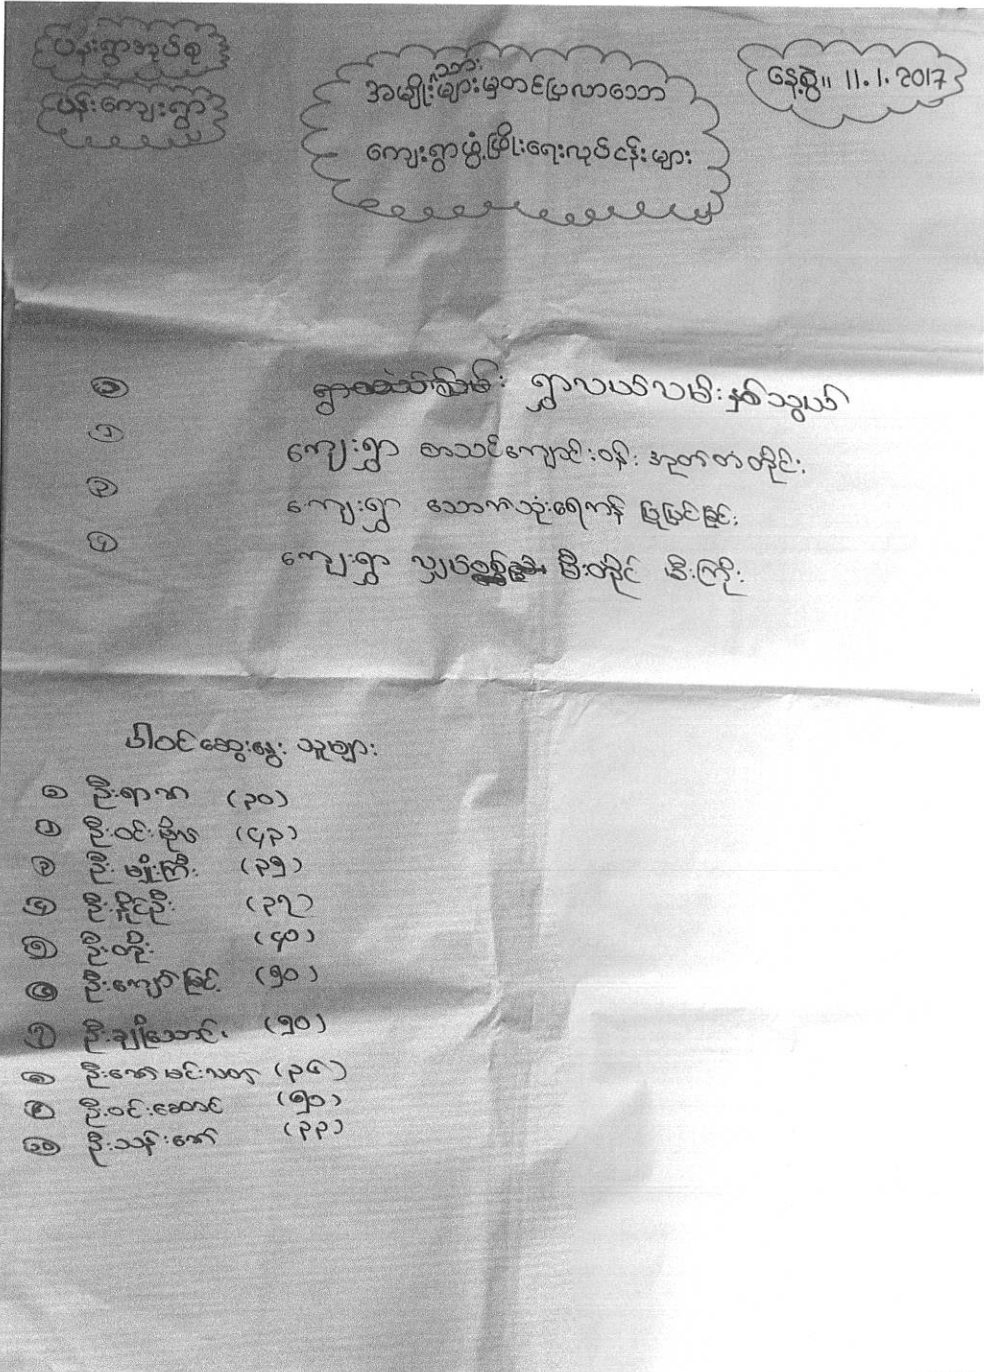 ပန်းရွာအုပ်စု
ပန်းကျေးရွာ
အမျိုးသားများမှတင်ပြလာသော
ကျေးရွာဖွံ့ဖြိုးရေးလုပ်ငန်းများ
နေ့စွဲ။ 11.1.2017
၁ ရွာ ရွာလယ်လမ်းနှစ်သွယ်
၂ ကျေးရွာ စာသင်ကျောင်းဝန်း အုတ်တံတိုင်း
၃ ကျေးရွာ သောက်သုံးရေကန် ပြုပြင်ခြင်း
၄ ကျေးရွာ လျှပ်စစ် မီးတိုင် မီးကြိုး
ပါဝင်ဆွေးနွေးသူများ
၁ ဦးရာဘ (၃၀)
၂ ဦးဝင်းဗိုလ် (၄၃)
၃ ဦးမျိုးကြီး (၃၅)
၄ ဦးနိုင်ဦး (၃၇)
၅ ဦးတိုး (၄၀)
၆ ဦးကျော်မြင့် (၅၀)
၇ ဦးချိုသောင်း (၅၀)
၈ ဦးအောင်မင်းသတ (၃၆)
၉ ဦးဝင်းဆောင် (၅၁)
၁၀ ဦးသန်းဇော် (၃၃)